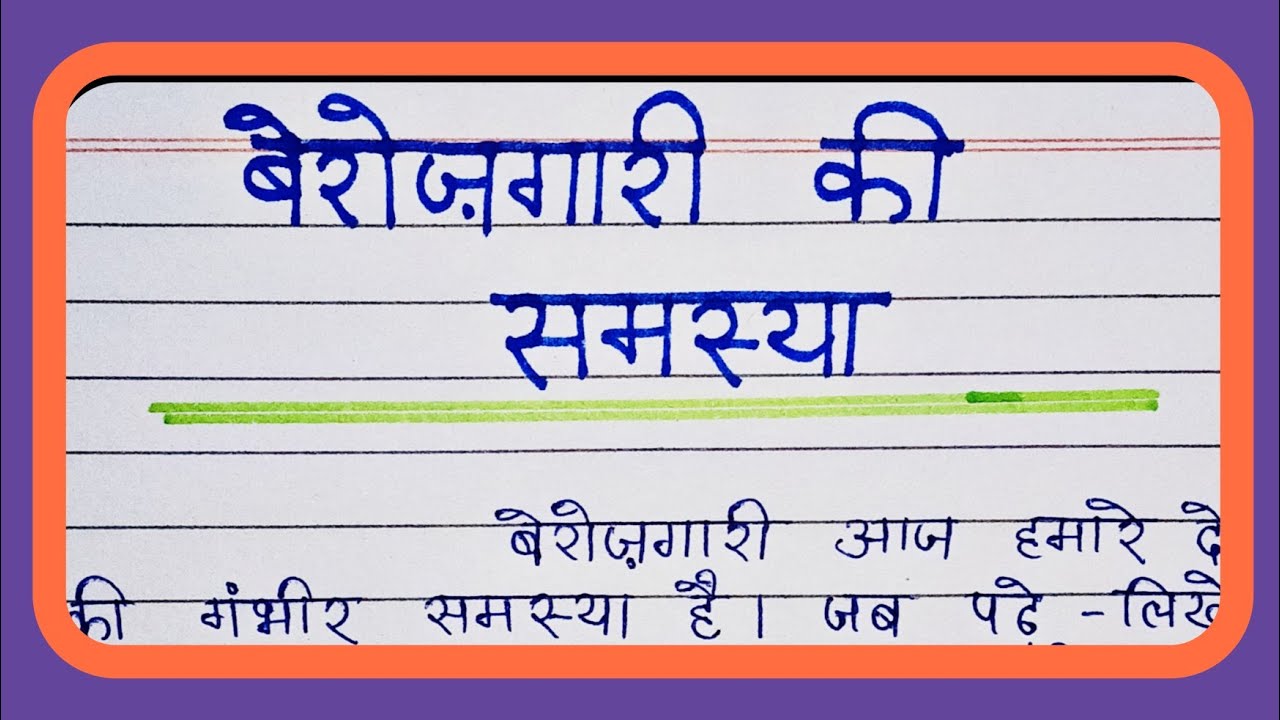 बेरोज़गारी की
समस्या
बेरोज़गारी आज हमारे दे
की गंभीर समस्या है। जब पढ़े-लिखे